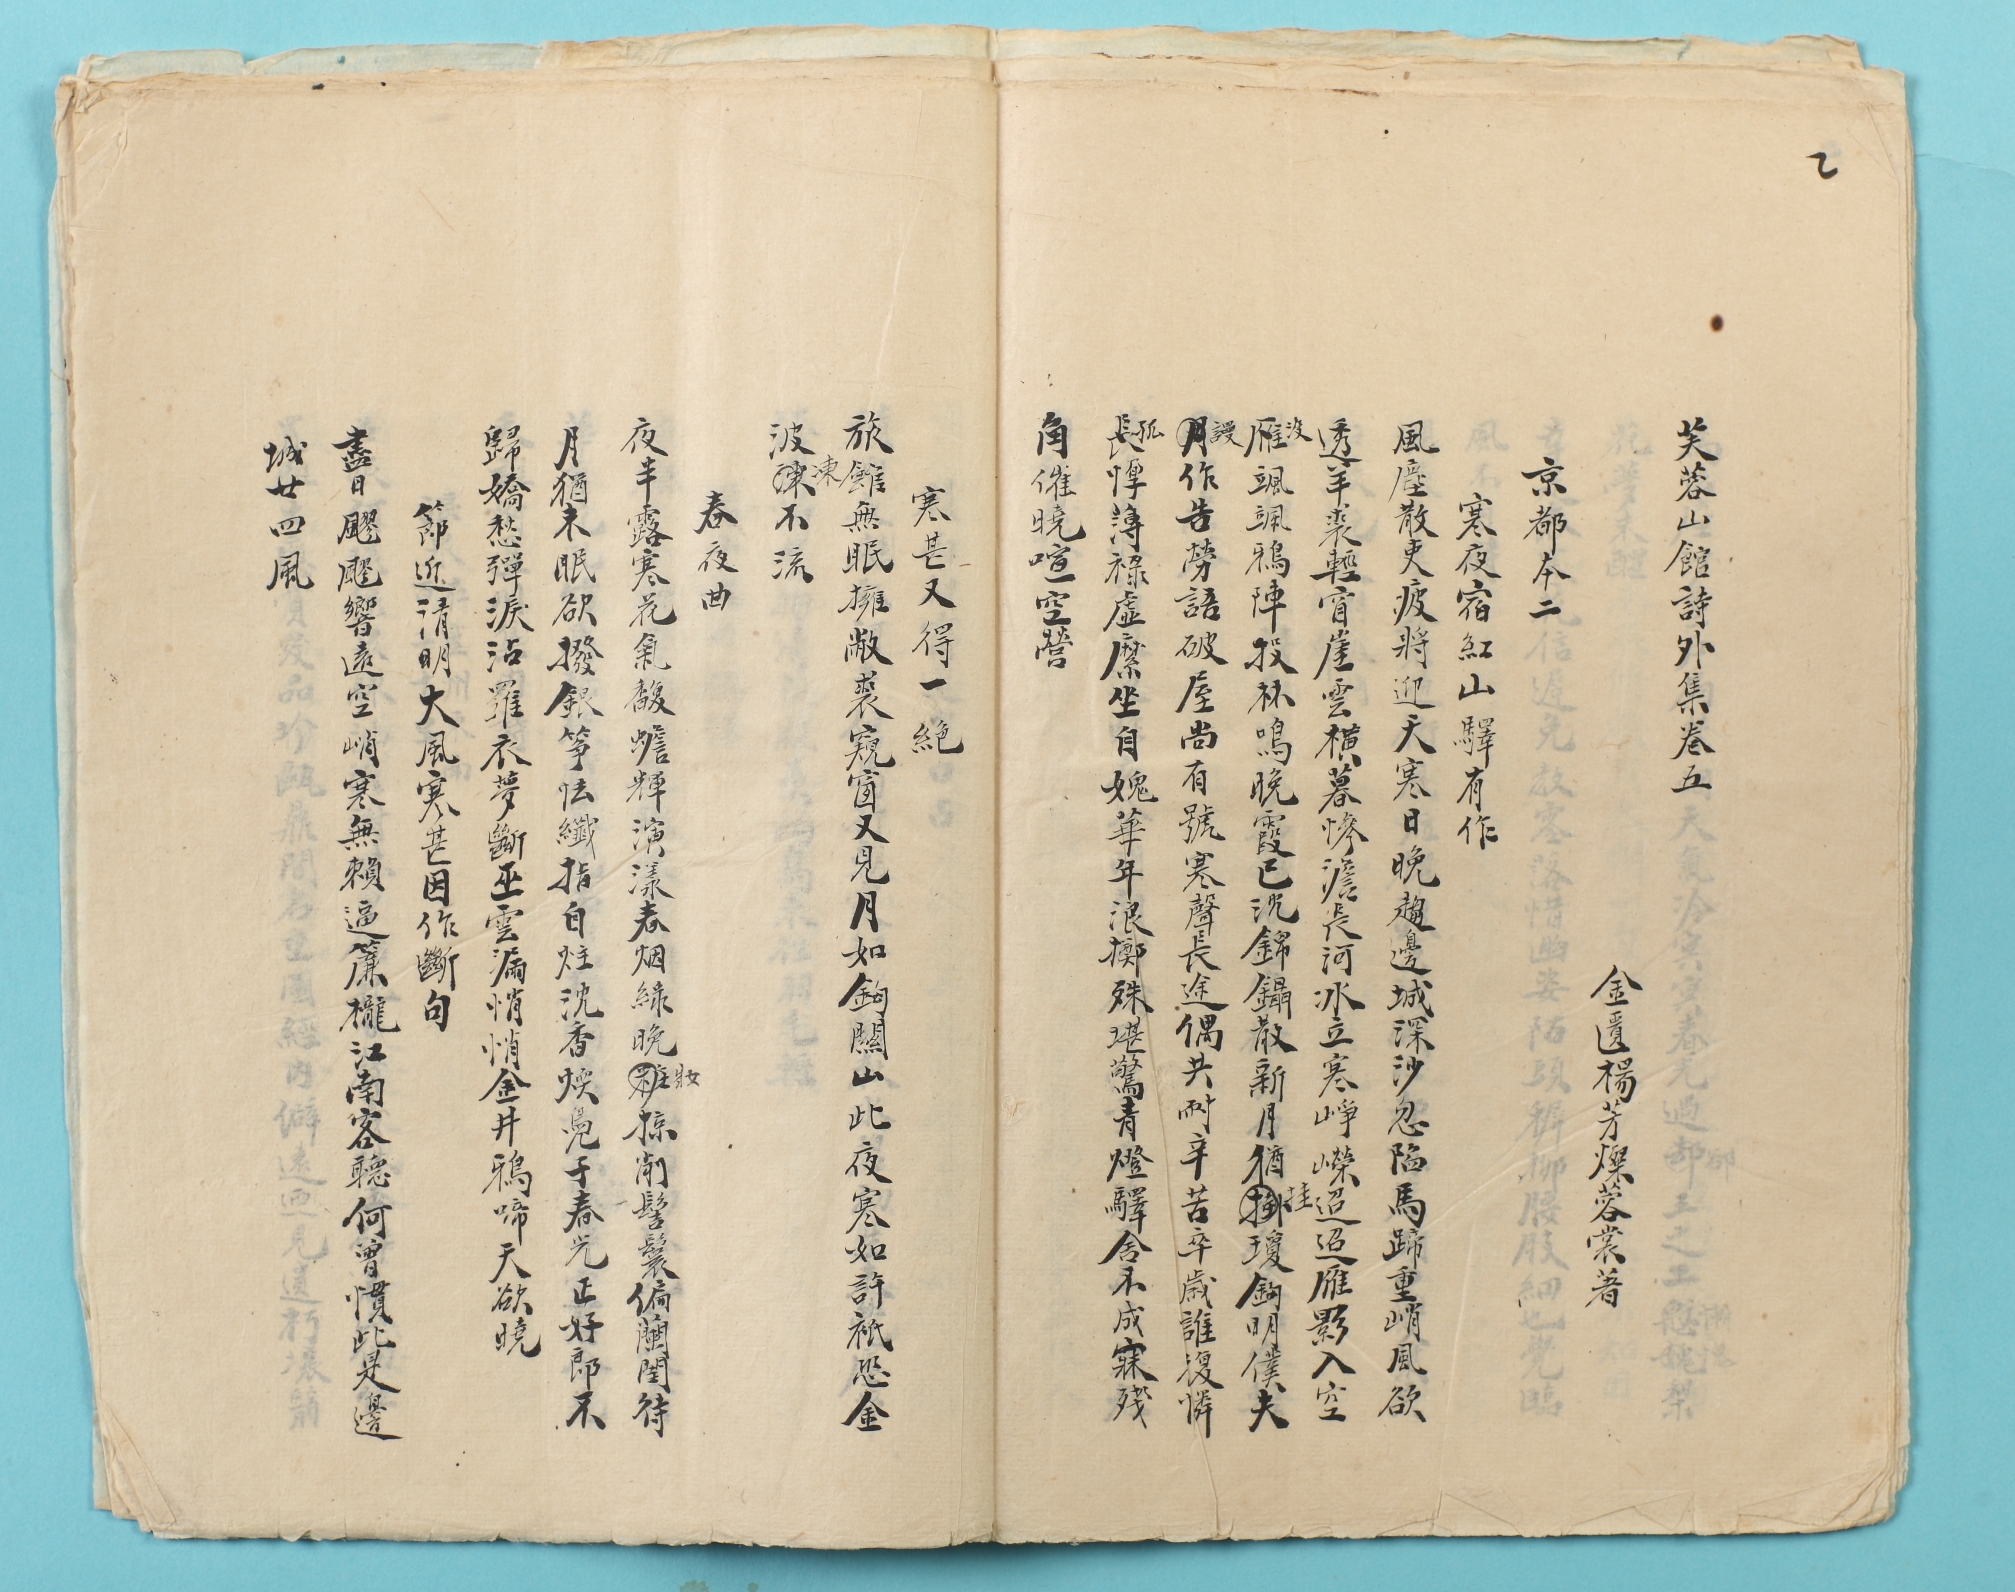 乙
芙蓉山館詩外集卷五
金匱楊芳燦蓉裳著
京都本二
寒夜宿紅山驛有作
風塵散吏疲將迎天寒日晚趨邊城深沙忽陷馬蹄重峭風欲
透羊裘輕窅崖雲橫暮慘澹長河冰立寒崢嶸迢迢雁影入空
雁没颯颯鴉陣投林鳴晚霞已沈錦鑷散新月猶掛挂瓊鉤明僕夫
月謾作告勞語破屋尚有號寒聲長途偶共耐辛苦卒歲誰復憐
長孤惸薄祿虛縻坐自媿華年浪擲殊堪驚青燈驛舍不成寐殘
角催曉喧空營
寒甚又得一絕
旅館無眠擁敝裘窺窗又見月如鉤關山此夜寒如許祇恐金
波凍不流
凍
春夜曲
夜半露寒花氣馥蟾輝演漾春烟綠晚粧妝掠削髻鬟偏蘭閨待
月猶未眠欲撥銀箏怯纖指自炷沈香煖鳧子春光正好郎不
歸嬌愁彈淚沾羅衣夢斷巫雲漏悄悄金井鴉啼天欲曉
節近清明大風寒甚因作斷句
盡日飂飂響遠空峭寒無賴逼簾櫳江南客聽何曾慣此是邊
城廿四風